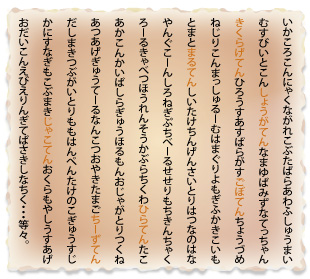 いかころこんにゃくながれこぶたばらあわふしゅうまい
むすびいとこんしょうがてんなまゆばみずなてっちゃん
きくらげてんひろうすあすぱらがすごぼてんちょうづめ
ねじりこんまっしゅるーむはまぐりよもぎふかきこいも
とまとまるてんしいたけちんげんさいとりはつなのはな
やんぐこーんしろねぎぷちべーるせせりもちきんちゃく
ろーるきゃべつほうれんそうかぶらちくわひらてんたこ
あかこんかいばしらぎゅうほるもんおじゃがとりつくね
あつあげぎゅうてーるなんこつおやきたまごちーずてん
だしまきつぶがいとりももはんぺんたけのこぎゅうすじ
かにすなぎもこぶまきじゃこてんおくらもやしうすあげ
おだいこんえびえりんぎてばさきしなちく・・・等々。